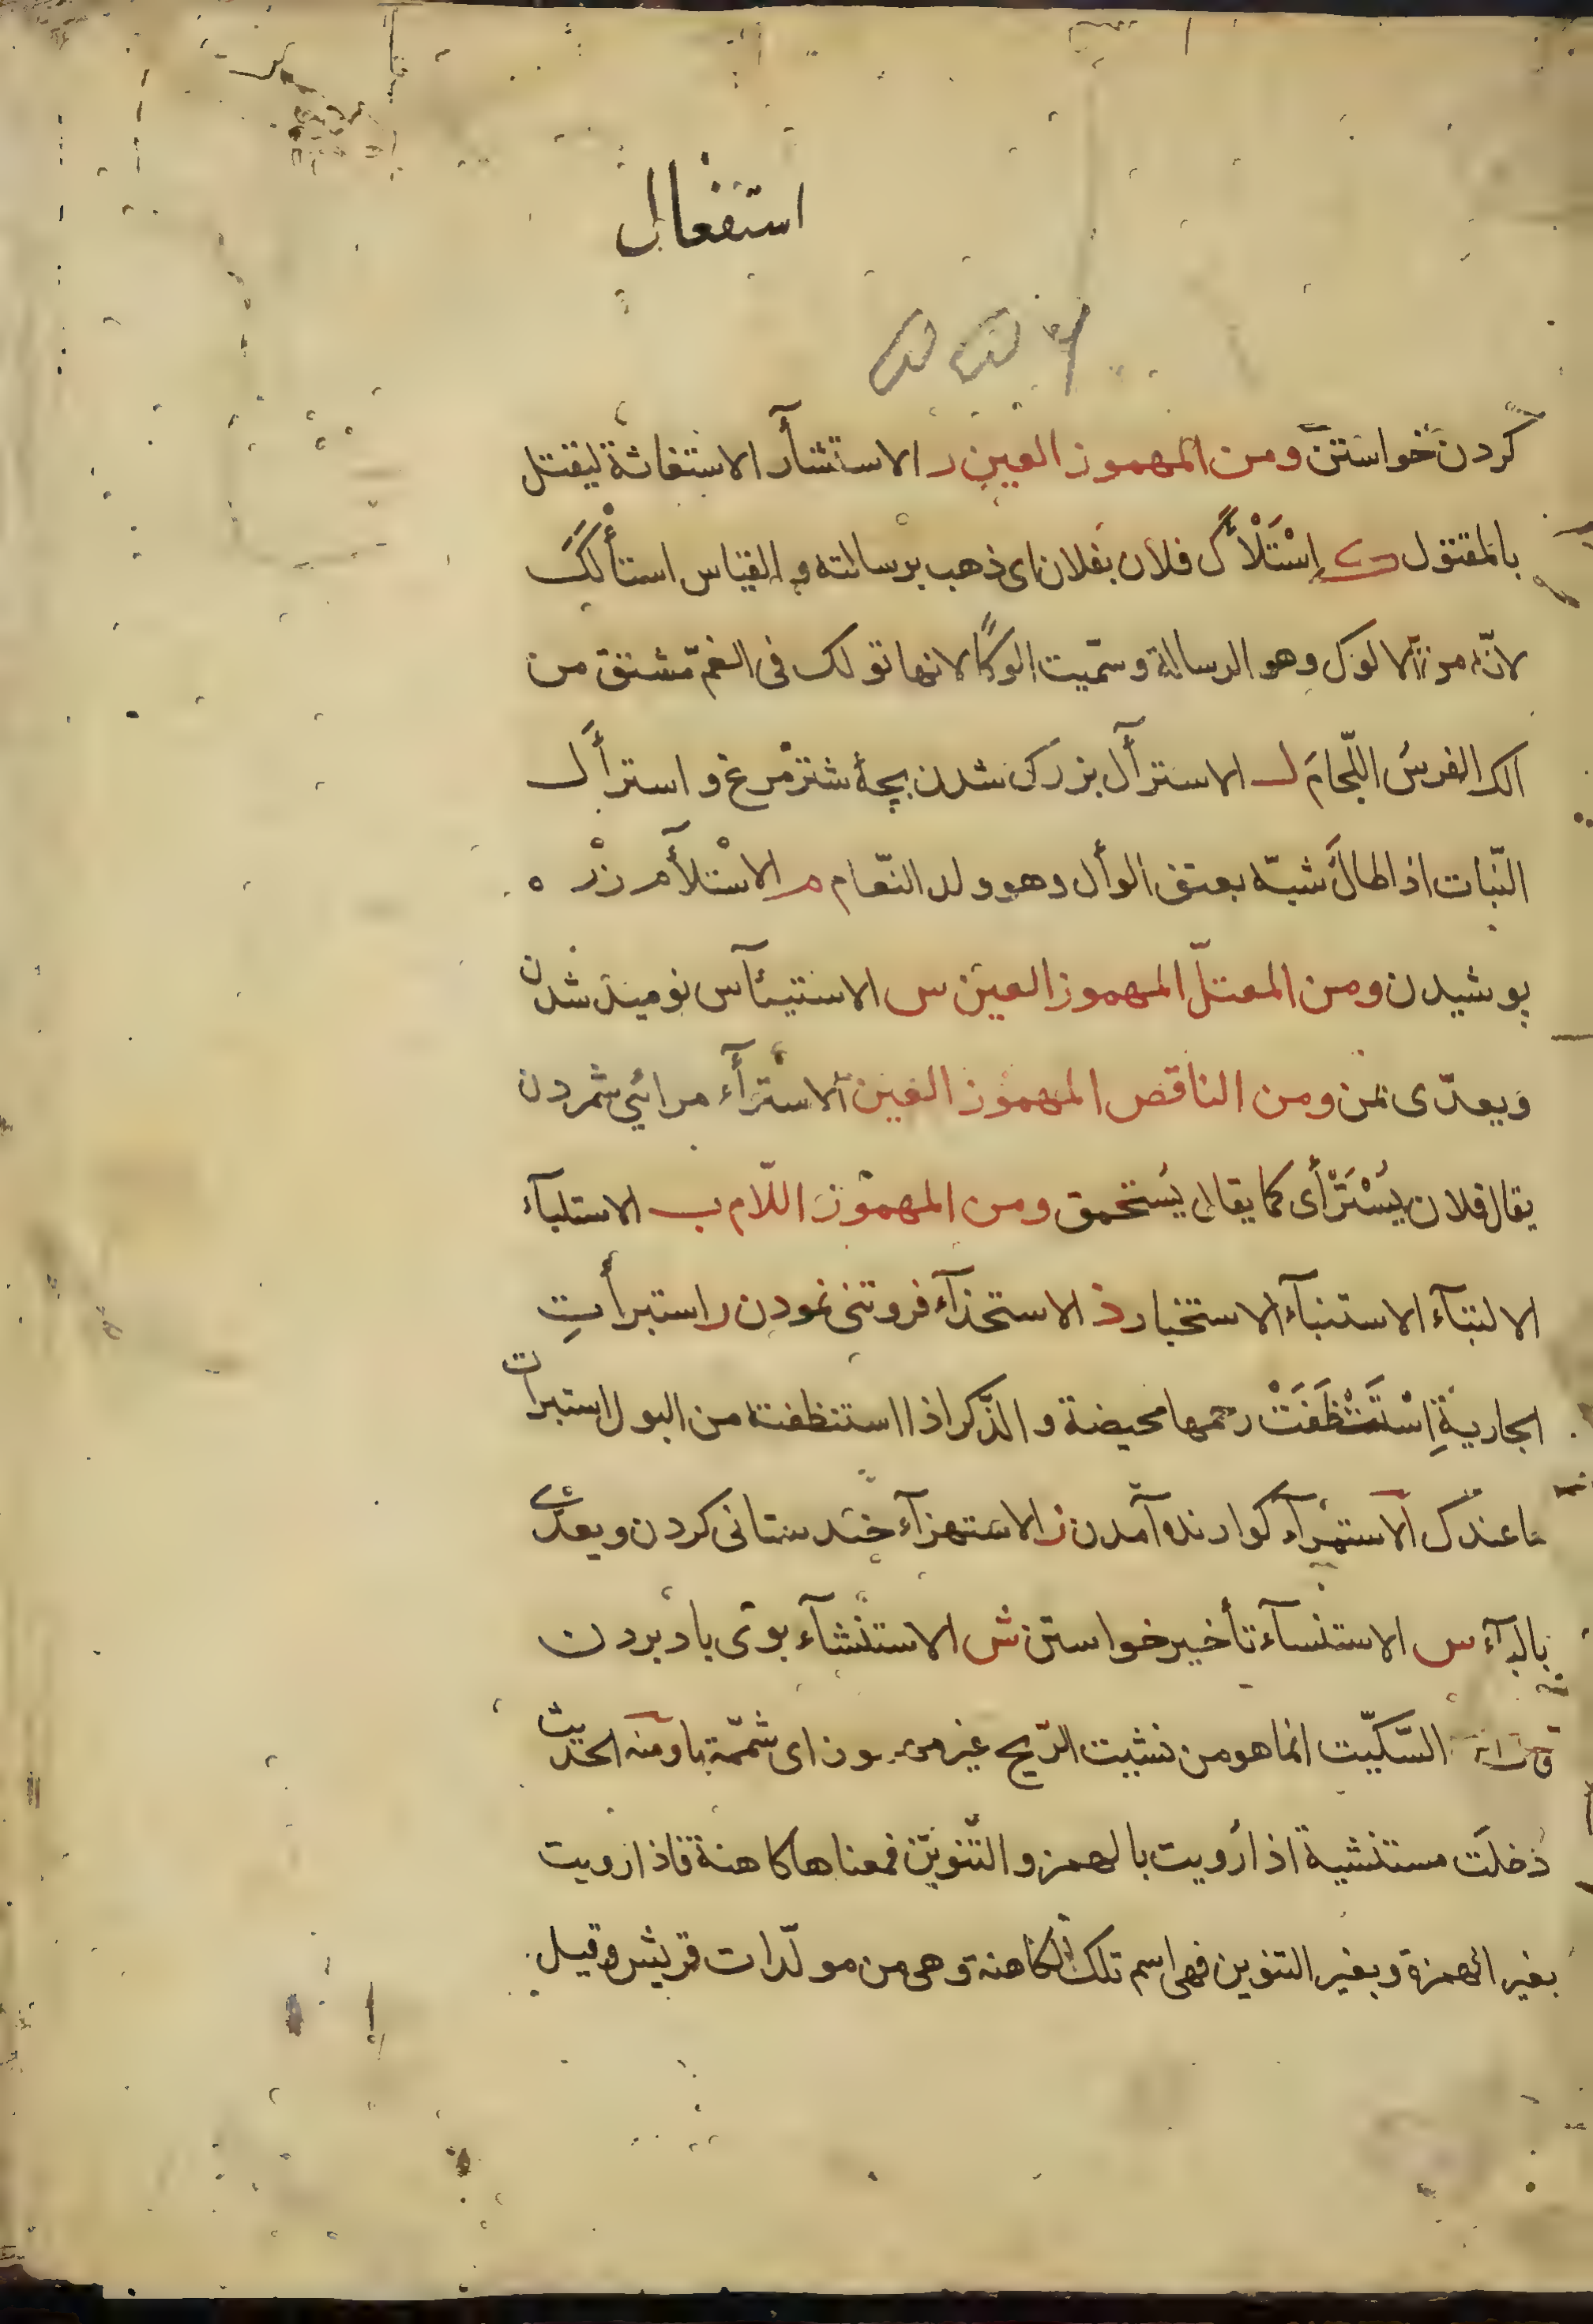 استفعال
كردن خواستن ومن المهموز العين ر الاستثآر الاستغاثة ليقتل
بالمقتول ك اِسْتَلْأَكَ فلان بفلان اى ذهب برسالته والقياس استأْلَكَ
لانّه من الالوك وهو الرسالة وسمّيت الوكًا لانها تولك فى الفم مّشتق من
الك الفرسُ اللّجامَ ل الاسترآل بزرك شدن بچهٔ شترمرغ و استرأَل
النّبات اذا طالَ شبّه بعنق الرأل وهو ولد النّعام م الاسْتلآم زرْه
پوشيدن ومن المعتلّ المهموز العين س الاستيئآس نوميد شدن
ويعدّى بمن ومن الناقص المهموز العين الاسْترآء مرائي شمردن
يقال فلان يُسْتَرْأى كما يقال يُستحمق ومن المهموز اللّام ب الاستلبآء
الالتبآء الاستنبآء الاستخبار ذ الاستخذآء فروتنى نمودن ر استبرأتِ
الجاريةِ اِسْتَنْظَفَتْ رحمها محيضة و الذّكر اذا استنظفته من البول استبرات
ما عندك الاستمرآء كوارنده آمدن ز الاستهزآء خندستانى كردن ويعدّى
بالبآء س الاستنسآء تأخير خواستن ش الاستنشآء بوى باد بردن
السّكيّت انما هو من نشيت الرّيح غير مهموز اى شممّتها ومنه الحديث
دُخلَت مستنشية اذا رُويت بالهمز و التّنوين فمعناها كاهنة فاذا رويت
بغير الهمزة وبغير التنوين فهى اسم تلك الكاهنة وهى من مولّدات قريش وقيل